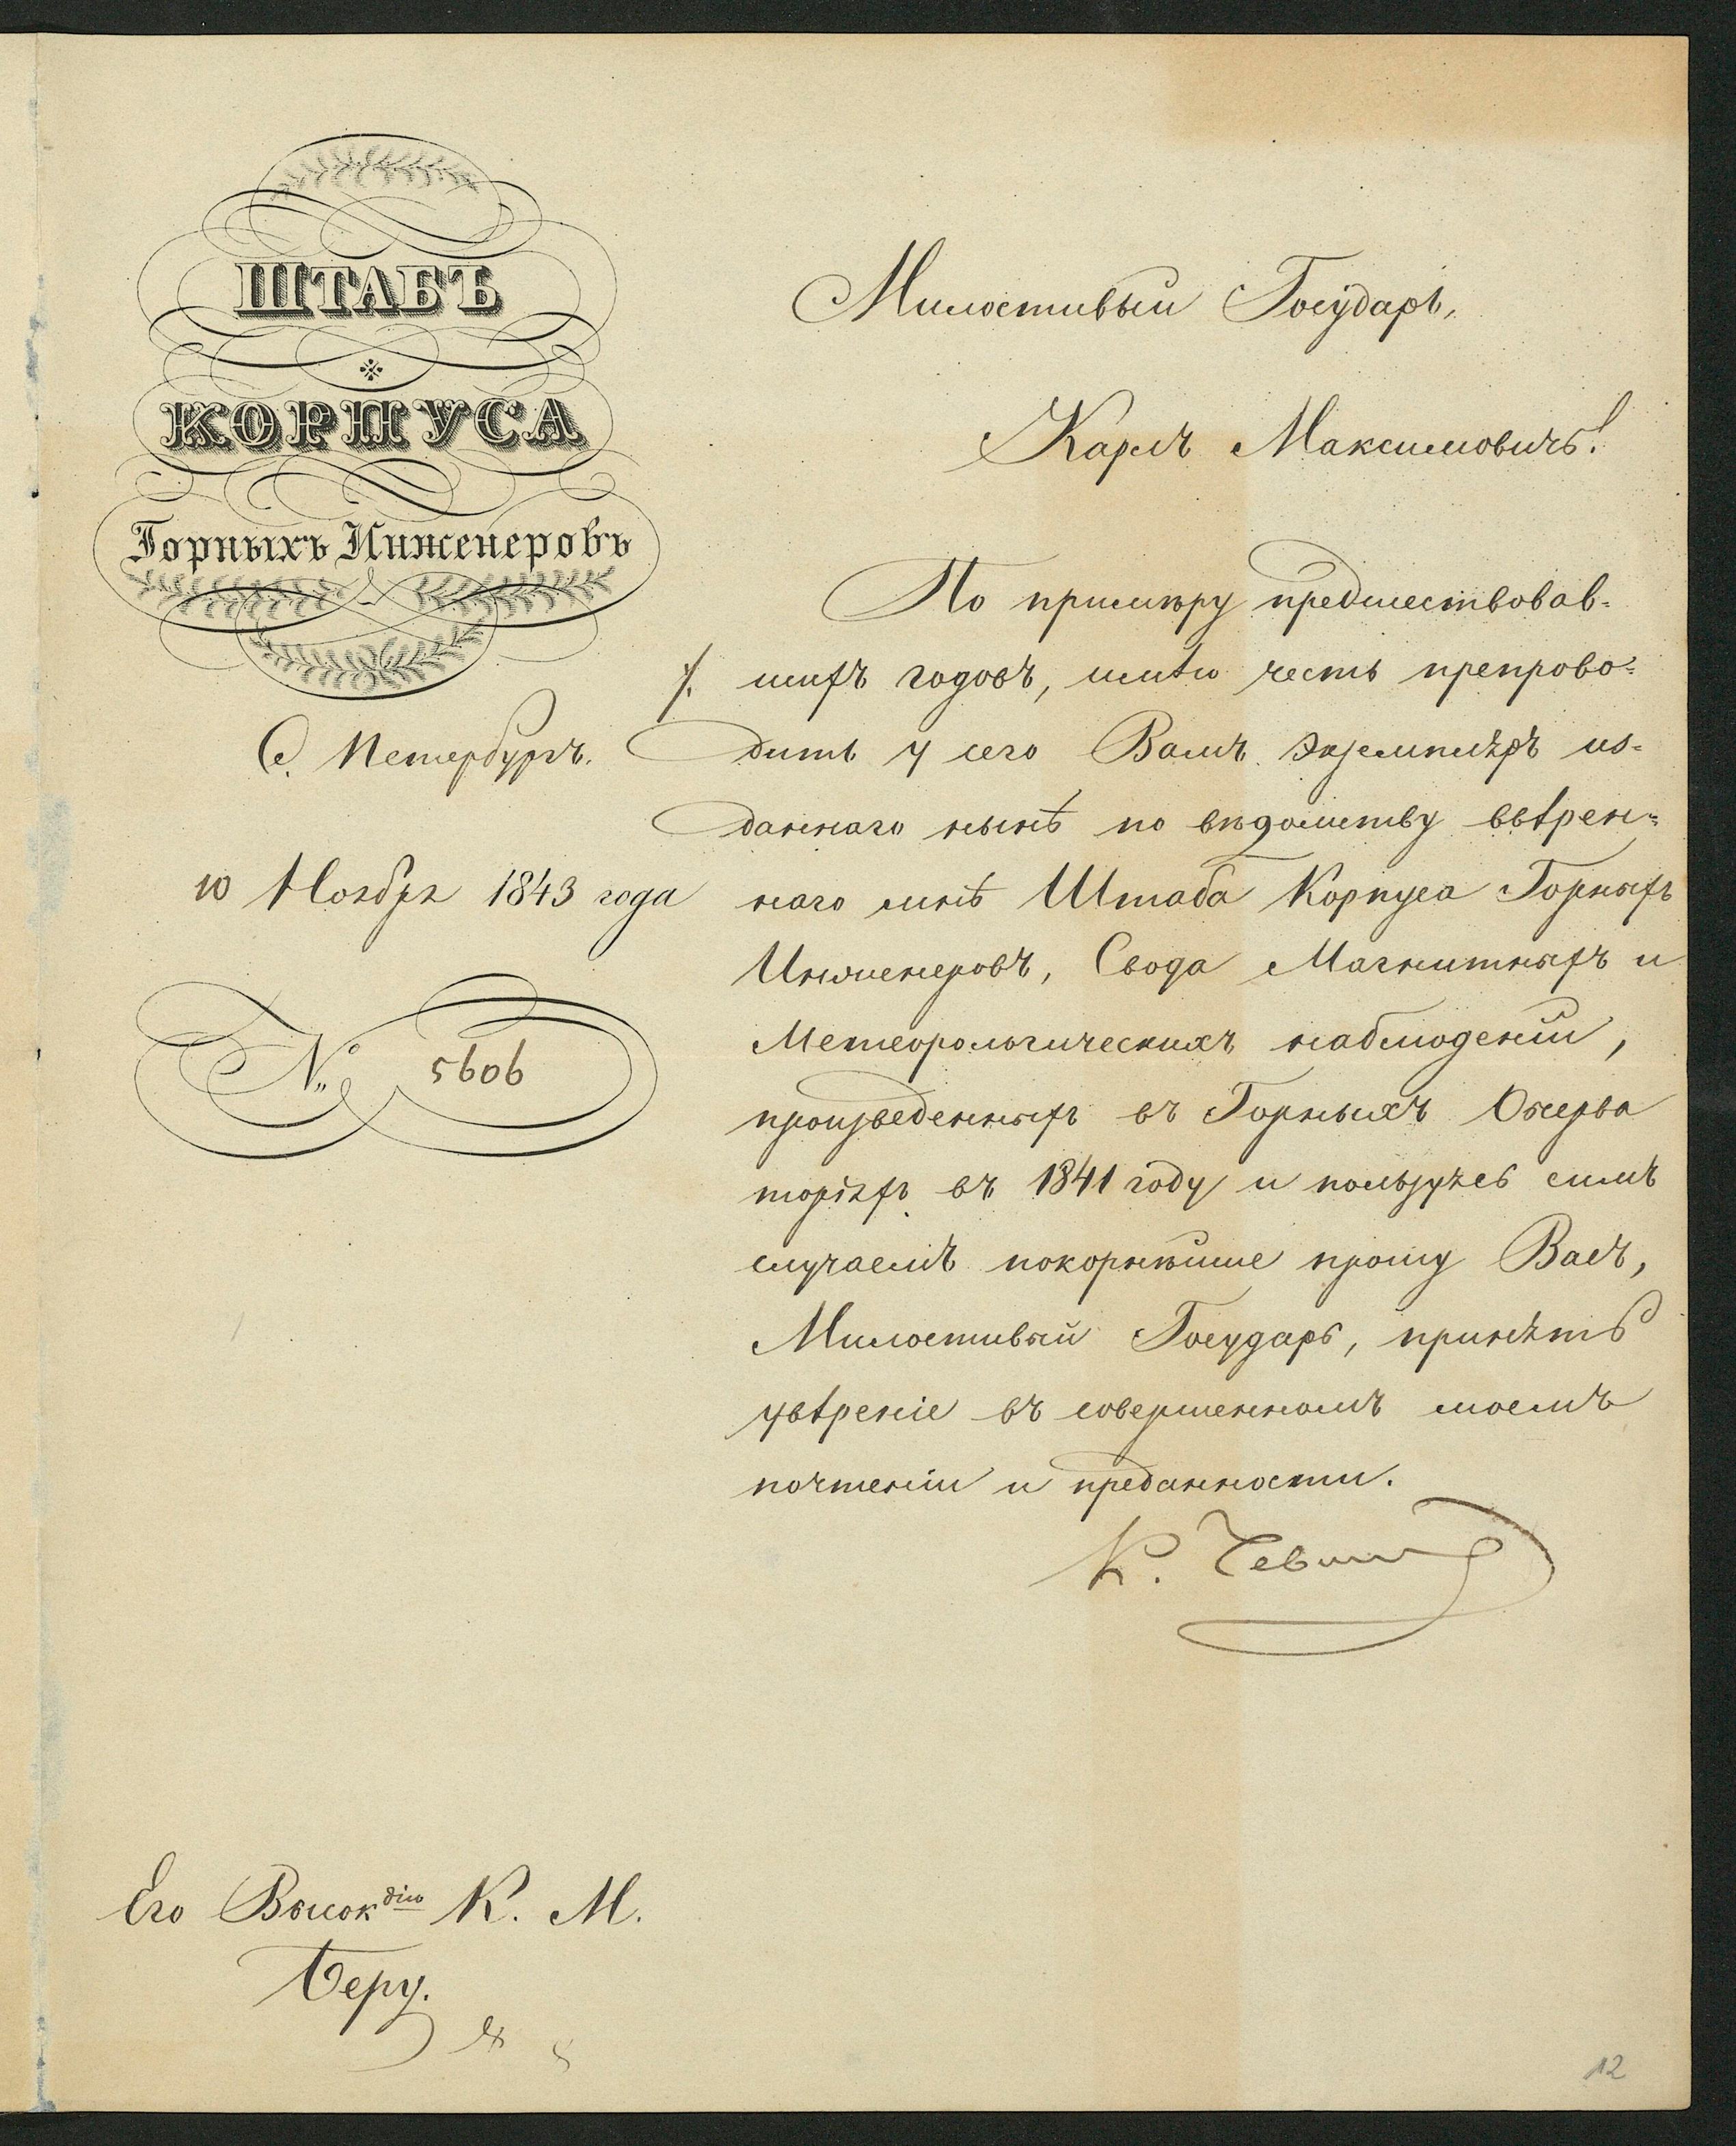 ШТАБЪ
КОРПУСА
Горныхъ Инженеровъ
С. Петербургъ.
10 Ноября 1843 года
№ 5606
Милостивый Государь,
Карлъ Максимовичь!
По примѣру предшествовав-
шихъ годовъ, имѣю честь препрово-
дить у сего Вамъ экземпляръ из-
даннаго нынѣ по вѣдомству ввѣрен-
наго мнѣ Штаба Корпуса Горныхъ
Инженеровъ, Свода Магнитныхъ и
Метеорологическихъ наблюденій,
произведенныхъ въ Горныхъ Обсерва
торіяхъ въ 1841 году и пользуясь симъ
случаемъ покорнѣйше прошу Васъ,
Милостивый Государь, принять
увѣреніе въ совершенномъ моемъ
почтеніи и преданности.
К. Чевкин
Его Высокдію К. М.
Беру.
12